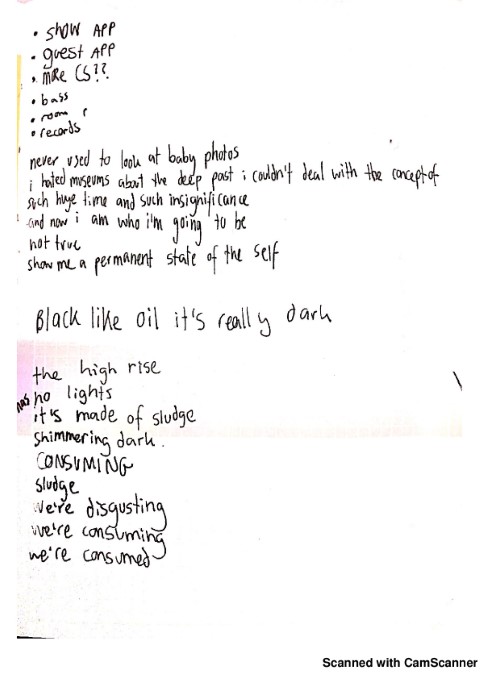 • show APP
• guest APP
• MRE CS??
• bass
• room
• records
never used to look at baby photos
i hated museums about the deep past i couldn't deal with the concept of
such huge time and such insignificance
and now i am who i'm going to be
not true
show me a permanent state of the self
Black like oil it's really dark
the high rise
has no lights
it's made of sludge
shimmering dark.
CONSUMING
sludge
we're disgusting
we're consuming
we're consumed
Scanned with CamScanner